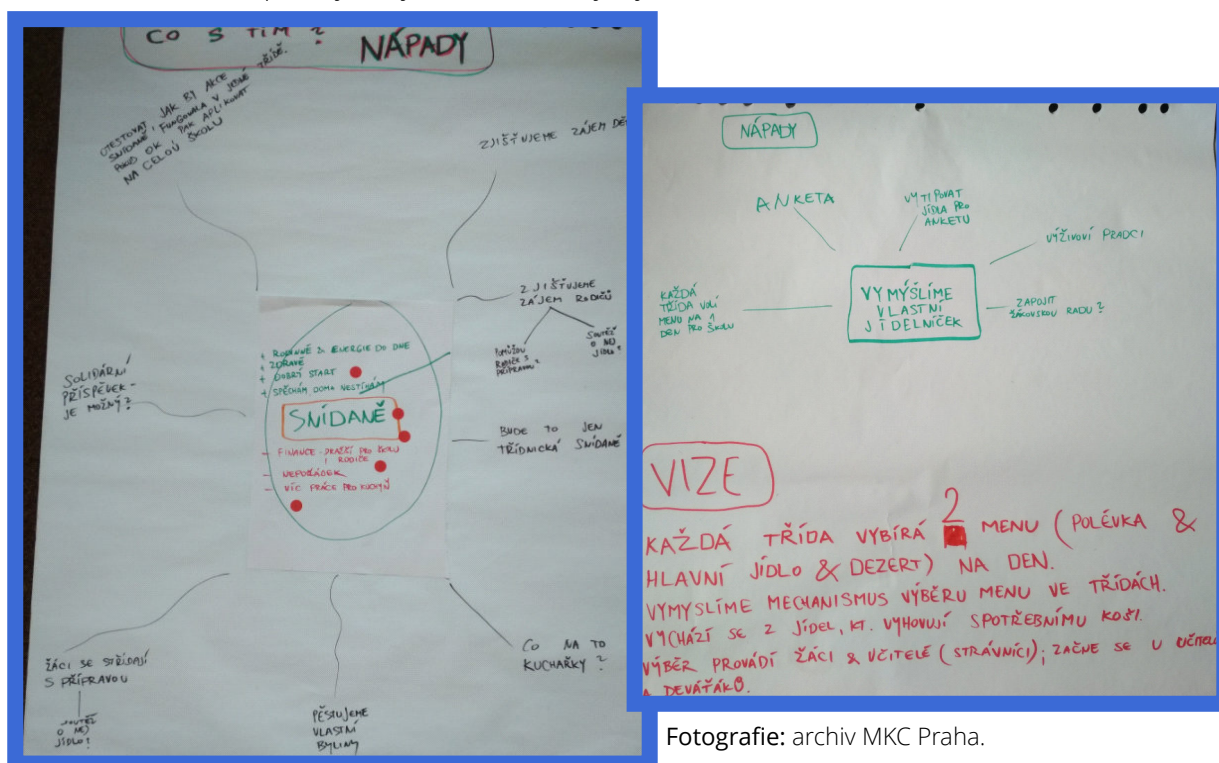 CO S TÍM?
NÁPADY
OTESTOVAT, JAK BY AKCE
SNÍDANĚ FUNGOVALA V JEDNÉ TŘÍDĚ.
POKUD OK PAK APLIKOVAT
NA CELOU ŠKOLU
ZJIŠŤUJEME ZÁJEM DĚ
ZJIŠŤUJEME
ZÁJEM RODIČŮ
POMŮŽOU
RODIČE S
PŘÍPRAVOU?
SOUTĚŽ
O NEJ
JÍDLO?
+ RODINNĚ 2x ENERGIE DO DNE
+ ZDRAVĚ
+ DOBRÝ START
+ SPĚCHÁM, DOMA NESTÍHÁM
SNÍDANĚ
- FINANCE - DRAŽŠÍ PRO ŠKOLU
I RODIČE
- NEPOŘÁDEK
- VÍC PRÁCE PRO KUCHYŇ
SOLIDÁRNÍ
PŘÍSPĚVEK -
JE MOŽNÝ?
BUDE TO JEN
TŘÍDNICKÁ SNÍDANĚ
ŽÁCI SE STŘÍDAJÍ
S PŘÍPRAVOU
SOUTĚŽ
O NEJ
JÍDLO!
PĚSTUJEME
VLASTNÍ
BYLINY
CO NA TO
KUCHAŘKY?
NÁPADY
ANKETA
VYTIPOVAT
JÍDLA PRO
ANKETU
VÝŽIVOVÍ PRADCI
KAŽDÁ
TŘÍDA VOLÍ
MENU NA 1
DEN PRO ŠKOLU
VYMÝŠLÍME
VLASTNÍ
JÍDELNÍČEK
ZAPOJIT
ŽÁKOVSKOU RADU?
VIZE
KAŽDÁ TŘÍDA VYBÍRÁ 2 MENU (POLÉVKA &
HLAVNÍ JÍDLO & DEZERT) NA DEN.
VYMYSLÍME MECHANISMUS VÝBĚRU MENU VE TŘÍDÁCH.
VYCHÁZÍ SE Z JÍDEL, KT. VYHOVUJÍ SPOTŘEBNÍMU KOŠI.
VÝBĚR PROVÁDÍ ŽÁCI & UČITELÉ (STRÁVNÍCI); ZAČNE SE U UČITELŮ
A DEVÁŤÁKŮ.
Fotografie: archiv MKC Praha.